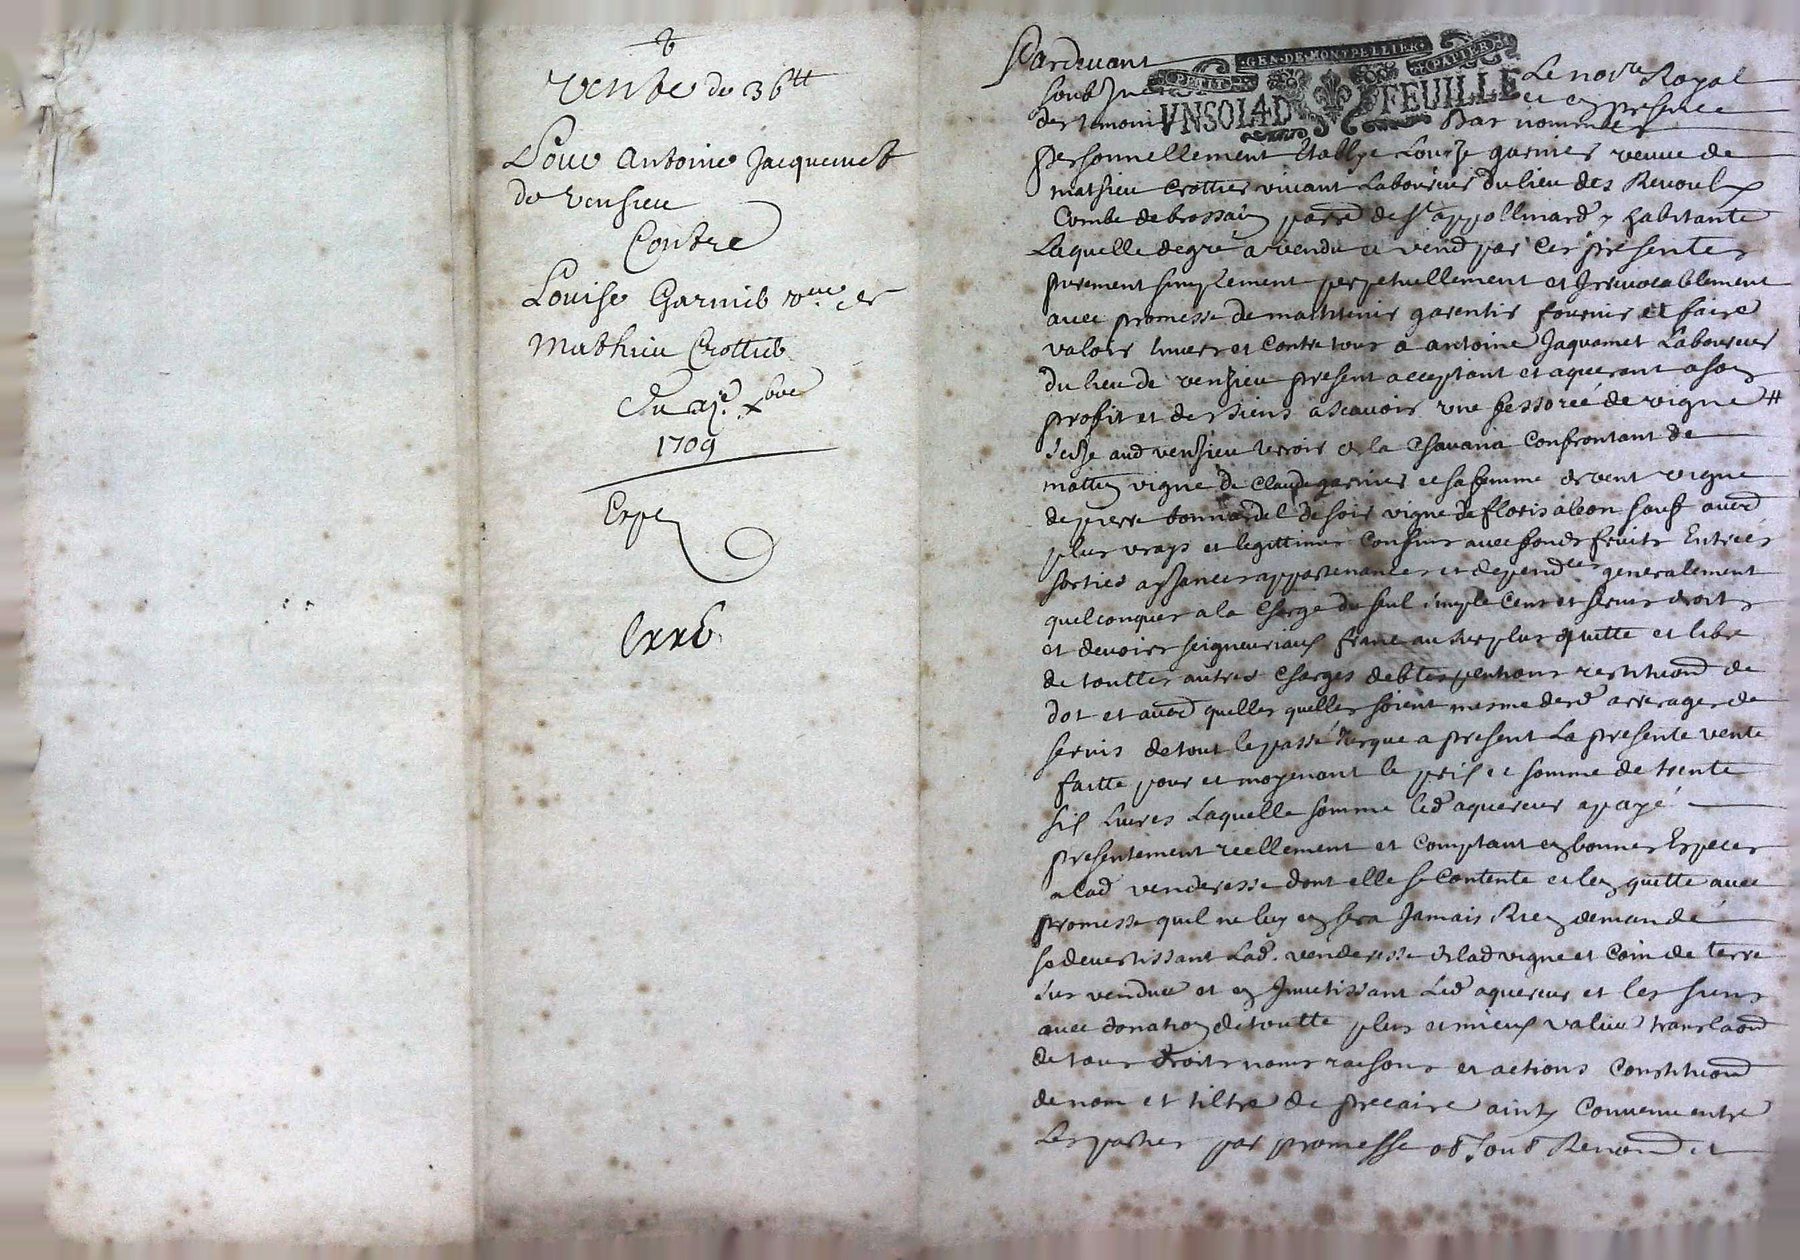 vente de 36tt
Pour antoine Jacquemet
de vensieu
Contre
Louise Garnie vve de
Mathieu Crottie
Du xje xbre
1709
Expe
Pardevant
GEN·DE·MONTPELLIER
PETIT PAPIER
VN SOL 4 D FEUILLE
Le nore Royal
soubsne et en presence
des temoins Bas nommes
personnellement establye Louize garnier veuve de
mathieu Crottier vivant Laboureur du lieu des Revoulx
Combe de brossain parre de st appollinard y habitante
Laquelle de gré a vendu et vend par ces presentes
purement simplement perpetuellement et Irrevocablement
avec promesse de maintenir garentir fournir et faire
valoir envers et contre tous a antoine Jaquemet Laboureur
du lieu de vensieu present acceptant et aquerant a son
profit et des siens ascavoir une fessoreé de vigne #
size aud vensieu terroir de la Chavana confrontant de
mattin vigne de Claude garnier et sa femme de vent vigne
de pierre bonnardel de soir vigne de floris aleon sauf auttres
plus vrays et legittimes confins avec fonds fruits Entreés
sorties aysances appartenances et dependces generalement
quelconques a la Charge du seul simple cens et servis droits
et devoirs seigneuriaux franc au surplus quitte et libre
de touttes autres charges debtes pentions restitutions de
dot et autres quelles quelles soient mesme desd arrerages de
servis de tout le passé Jusque a present La presente vente
faitte pour et moyenant le prix et somme de trente
six livres Laquelle somme led aquereur a payé
presentement reellement et comptant en bonnes Especes
a lad venderesse dont elle se contente et len quitte avec
promesse quil ne luy en sera Jamais Rien demandé
se devertissant Lad. venderesse de lad vigne et coin de terre
sus vendue et en Investissant Led aquereur et les siens
avec donation de toutte plus et mieux value translaon
de tous droits noms raisons et actions constitution
de nom et tiltre de precaire ainsy convenu entre
Les parties par promesse obs Soubs Renon et